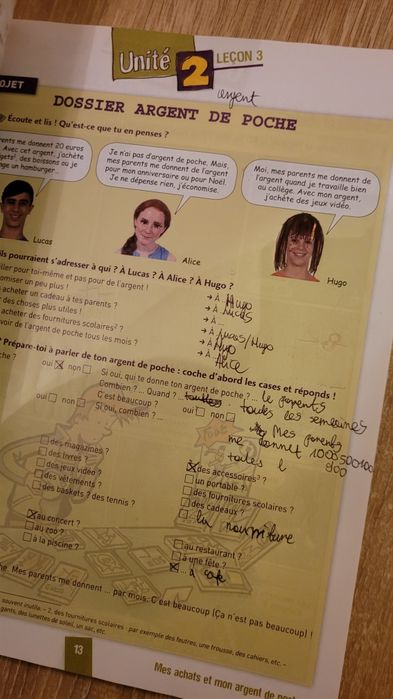 Unité 2 LEÇON 3
OJET
argent
DOSSIER ARGENT DE POCHE
Écoute et lis ! Qu'est-ce que tu en penses ?
rents me donnent 20 euros
Avec cet argent, j'achète
gets², des boissons ou je
nge un hamburger.
Lucas
Je n'ai pas d'argent de poche. Mais,
mes parents me donnent de l'argent
pour mon anniversaire ou pour Noël.
Je ne dépense rien, j'économise.
Alice
Moi, mes parents me donnent de
l'argent quand je travaille bien
au collège. Avec mon argent,
j'achète des jeux vidéo.
Hugo
ils pourraient s'adresser à qui ? À Lucas ? À Alice ? À Hugo ?
iller pour toi-même et pas pour de l'argent ! → À Hugo
omiser un peu plus ! → À Lucas
acheter un cadeau à tes parents ? → À ...
des choses plus utiles ! → À Lucas/Hugo
acheter des fournitures scolaires² ? → À Hugo
voir de l'argent de poche tous les mois ? → À Alice
Prépare-toi à parler de ton argent de poche : coche d'abord les cases et réponds !
che ? oui non
Si oui, qui te donne ton argent de poche ? ... le parents
Combien ? ... Quand ? ... toutes les semeines
C'est beaucoup ? oui non
oui non Si oui, combien ? ...
Mes parents
me donnet
toutes l
des magazines ?
des livres ?
des jeux vidéo ?
des vêtements ?
des baskets ? des tennis ?
des accessoires³ ?
un portable ?
des fournitures scolaires ?
des cadeaux ?
la nourriture
au concert ?
au zoo ?
à la piscine ?
au restaurant ?
à une fête ?
... à cafe
che. Mes parents me donnent ... par mois. C'est beaucoup (Ça n'est pas beaucoup) !
souvent inutile. – 2. des fournitures scolaires : par exemple des feutres, une trousse, des cahiers, etc. –
gants, des lunettes de soleil, un sac, etc.
13
Mes achats et mon argent de po